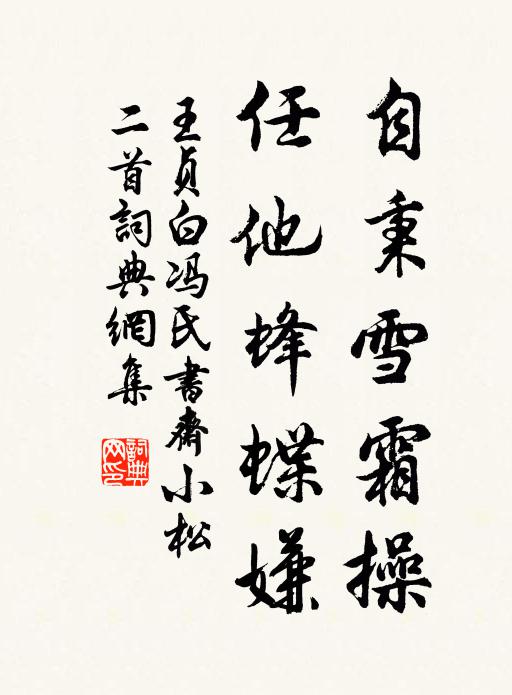 自秉雪霜操
任他蜂蝶嫌
王贞白冯氏書齋小松
二首詞典網集
詞典
网印